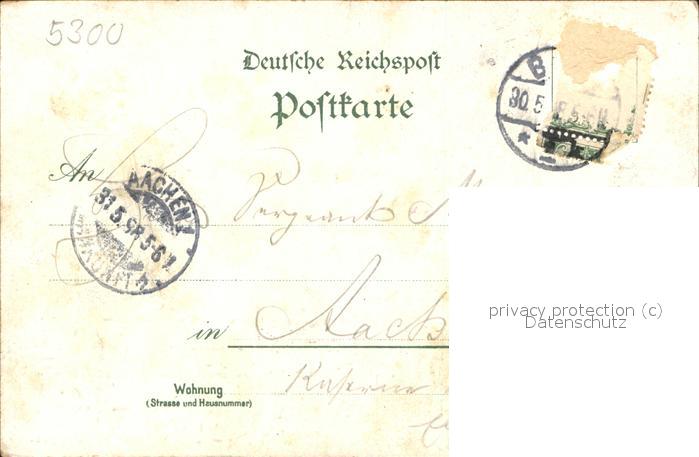 5300
Deutsche Reichspost
Postkarte
B
30.5
5-6N
An
AACHEN 1
31.5.98.5-6V
Sergeant
privacy protection (c)
Datenschutz
in Aach
Kaserne
Wohnung
(Strasse und Hausnummer)